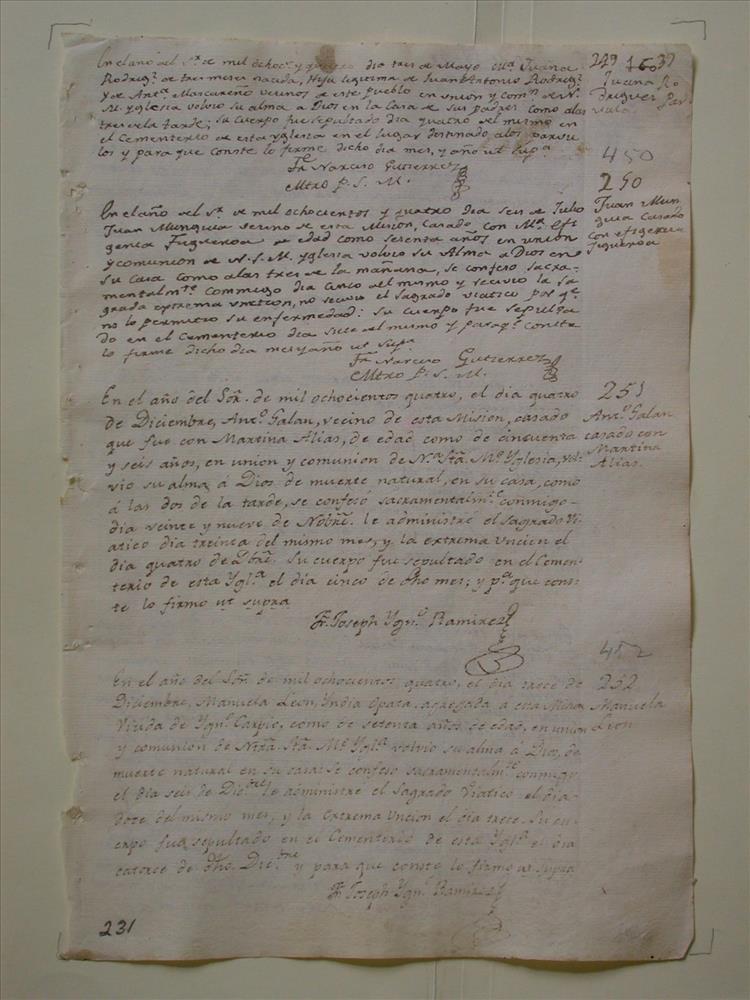 En el año del Sr. de mil ochocs. y quatro dia tres de Mayo Ma. Juana
Rodrigz. de tres meses nacida, Hija legitima de Juan Antonio Rodrigz.
y de Anta. Mascareño vecinos de este pueblo en union y comn. de N.
M. Yglesia volvio su alma a Dios en la Casa de sus padres como a las
tres de la tarde; su cuerpo fue sepultado dia quatro del mismo en
el Cementerio de esta Yglesia en el lugar destinado a los parvu-
los y para que conste lo firme dicho dia mes, y año ut supa.
Fr. Narciso Gutierrez
Mtro P. S. M.
249 160 37
Juana Ro
driguez Par
vula.
450
250
Juan Mun
guia Casado
con efigenia
figueroa
En el año del Sr. de mil ochocientos y quatro dia seis de Julio
Juan Munguia vecino de esta Mision, Casado con Ma. Efi
genia Figueroa de edad como sesenta años en union
y comunion de N. S. M. Yglesia volvio su Alma a Dios en
su casa como a las tres de la mañana, se confeso sacra-
mentalmte. conmigo dia cinco del mismo y recivio la sa
grada extrema uncion, no recivio el sagrado viatico por qe.
no lo permitio su enfermedad: su cuerpo fue sepulta
do en el Cementerio dia siete del mismo y para qe. conste
lo firme dicho dia mes y año ut supa.
Fr. Narciso Gutierrez
Mtro P. S. M.
En el año del Sōr. de mil ochocientos quatro, el dia quatro
de Diciembre, Anto. Galan, vecino de esta Mision, casado
que fue con Martina Alias, de edad como de cincuenta
y seis años, en union y comunion de Na. Stā. Me. Yglesia, vol-
vio su alma á Dios de muerte natural, en su casa, como
á las dos de la tarde, se confesó sacramentalme. conmigo
dia veinte y nueve de Nobrē. le administre el sagrado Vi
atico dia treinta del mismo mes, y la extrema Uncion el
dia quatro de Xbrē. Su cuerpo fue sepultado en el Cemen
terio de esta Ygla. el dia cinco de dho mes; y pa. que cons-
te lo firmo ut supra
Fr. Joseph Ygno. Ramirez
251
Anto. Galan
casado con
Martina
Alias.
452
252
Manuela
Leon
En el año del Sōr. de mil ochocientos quatro, el dia trece de
Diciembre, Manuela Leon, Yndia Opata, agregada a esta Mision
Viuda de Ygno. Carpio, como de setenta años de edad, en union
y comunion de Ntrā. Stā. Me. Yglā. volvio su alma á Dios, de
muerte natural en su casa: se confeso sacramentalmte. conmigo
el dia seis de Dicbre. le administre el Sagrado Viatico el dia
dose del mismo mes, y la Extrema Uncion el dia trece. Su cu
erpo fue sepultado en el Cementerio de esta Ygla. el dia
catorce de dho. Dicbre. y para que conste lo firmo ut supra
Fr. Joseph Ygno. Ramirez
231